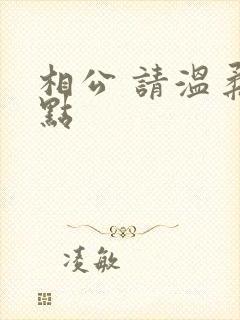 相公 請溫柔
點
凌敏